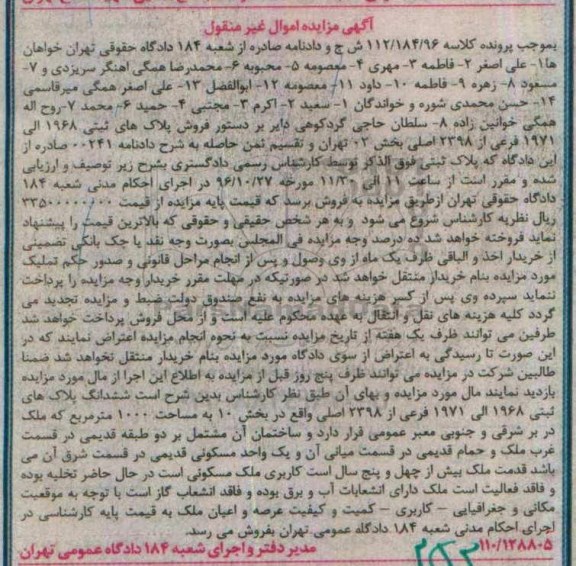 آگهی مزایده اموال غیر منقول
بموجب پرونده کلاسه ۱۱۲/۱۸۴/۹۶ ش ج و دادنامه صادره از شعبه ۱۸۴ دادگاه حقوقی تهران خواهان
ها۱- علی اصغر ۲- فاطمه ۳- مهری ۴- معصومه ۵- محبوبه ۶- محمدرضا همگی اهنگر سریزدی و ۷-
مسعود ۸- زهره ۹- فاطمه ۱۰- داود ۱۱- معصومه ۱۲- ابوالفضل ۱۳- علی اصغر همگی میرقاسمی
۱۴- حسن محمدی شوره و خواندگان ۱- سعید ۲- اکرم ۳- مجتبی ۴- حمید ۶- محمد ۷-روح اله
همگی خوانین زاده ۸- سلطان حاجی گردکوهی دایر بر دستور فروش پلاک های ثبتی ۱۹۶۸ الی
۱۹۷۱ فرعی از ۲۳۹۸ اصلی بخش ۰۲ تهران و تقسیم ثمن حاصله به شرح دادنامه ۰۰۲۴۱ صادره از
این دادگاه که پلاک ثبتی فوق الذکر توسط کارشناس رسمی دادگستری بشرح زیر توصیف و ارزیابی
شده و مقرر است از ساعت ۱۱ الی ۱۱/۳۰ مورخه ۹۶/۱۰/۲۷ در اجرای احکام مدنی شعبه ۱۸۴
دادگاه حقوقی تهران ازطریق مزایده به فروش برسد که قیمت پایه مزایده از قیمت ۳۳۵۰۰۰۰۰۰۰۰
ریال نظریه کارشناس شروع می شود و به هر شخص حقیقی و حقوقی که بالاترین قیمت را پیشنهاد
نماید فروخته خواهد شد ده درصد وجه مزایده فی المجلس بصورت وجه نقد یا چک بانکی تضمینی
از خریدار اخذ و الباقی ظرف یک ماه از وی وصول و پس از انجام مراحل قانونی و صدور حکم تملیک
مورد مزایده بنام خریدار منتقل خواهد شد در صورتیکه در مهلت مقرر خریدار وجه مزایده را پرداخت
ننماید سپرده وی پس از کسر هزینه های مزایده به نفع صندوق دولت ضبط و مزایده تجدید می
گردد کلیه هزینه های نقل و انتقال به عهده محکوم علیه است و از محل فروش پرداخت خواهد شد
طرفین می توانند ظرف یک هفته از تاریخ مزایده نسبت به نحوه انجام مزایده اعتراض نمایند که در
این صورت تا رسیدگی به اعتراض از سوی دادگاه مورد مزایده بنام خریدار منتقل نخواهد شد ضمنا
طالبین شرکت در مزایده می توانند ظرف پنج روز قبل از مزایده به اطلاع این اجرا از مال مورد مزایده
بازدید نمایند مال مورد مزایده و بهای آن طبق نظر کارشناس بدین شرح است ششدانگ پلاک های
ثبتی ۱۹۶۸ الی ۱۹۷۱ فرعی از ۲۳۹۸ اصلی واقع در بخش ۱۰ به مساحت ۱۰۰۰ مترمربع که ملک
در بر شرقی و جنوبی معبر عمومی قرار دارد و ساختمان آن مشتمل بر دو طبقه قدیمی در قسمت
غرب ملک و حمام قدیمی در قسمت میانی آن و یک واحد مسکونی قدیمی در قسمت شرق آن می
باشد قدمت ملک بیش از چهل و پنج سال است کاربری ملک مسکونی است در حال حاضر تخلیه بوده
و فاقد فعالیت است ملک دارای انشعابات آب و برق بوده و فاقد انشعاب گاز است با توجه به موقعیت
مکانی و جغرافیایی – کاربری – کمیت و کیفیت عرصه و اعیان ملک به قیمت پایه کارشناسی در
اجرای احکام مدنی شعبه ۱۸۴ دادگاه عمومی تهران بفروش می رسد.
۱۱۰/۱۳۸۸۰۵
مدیر دفتر و اجرای شعبه ۱۸۴ دادگاه عمومی تهران